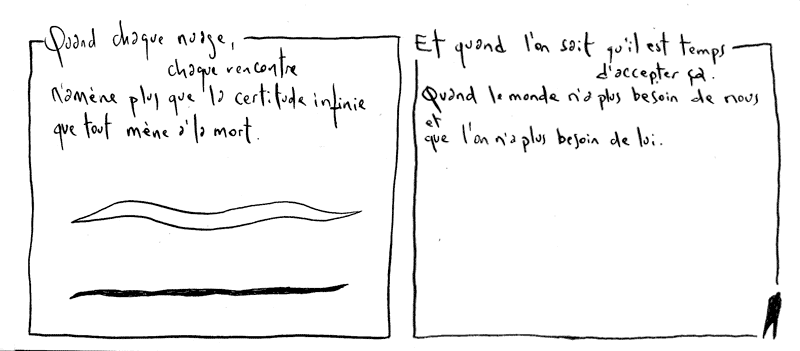 Quand chaque nuage,
chaque rencontre
n'amène plus que la certitude infinie
que tout mène à la mort.
Et quand l'on sait qu'il est temps
d'accepter ça.
Quand le monde n'a plus besoin de nous
et
que l'on n'a plus besoin de lui.